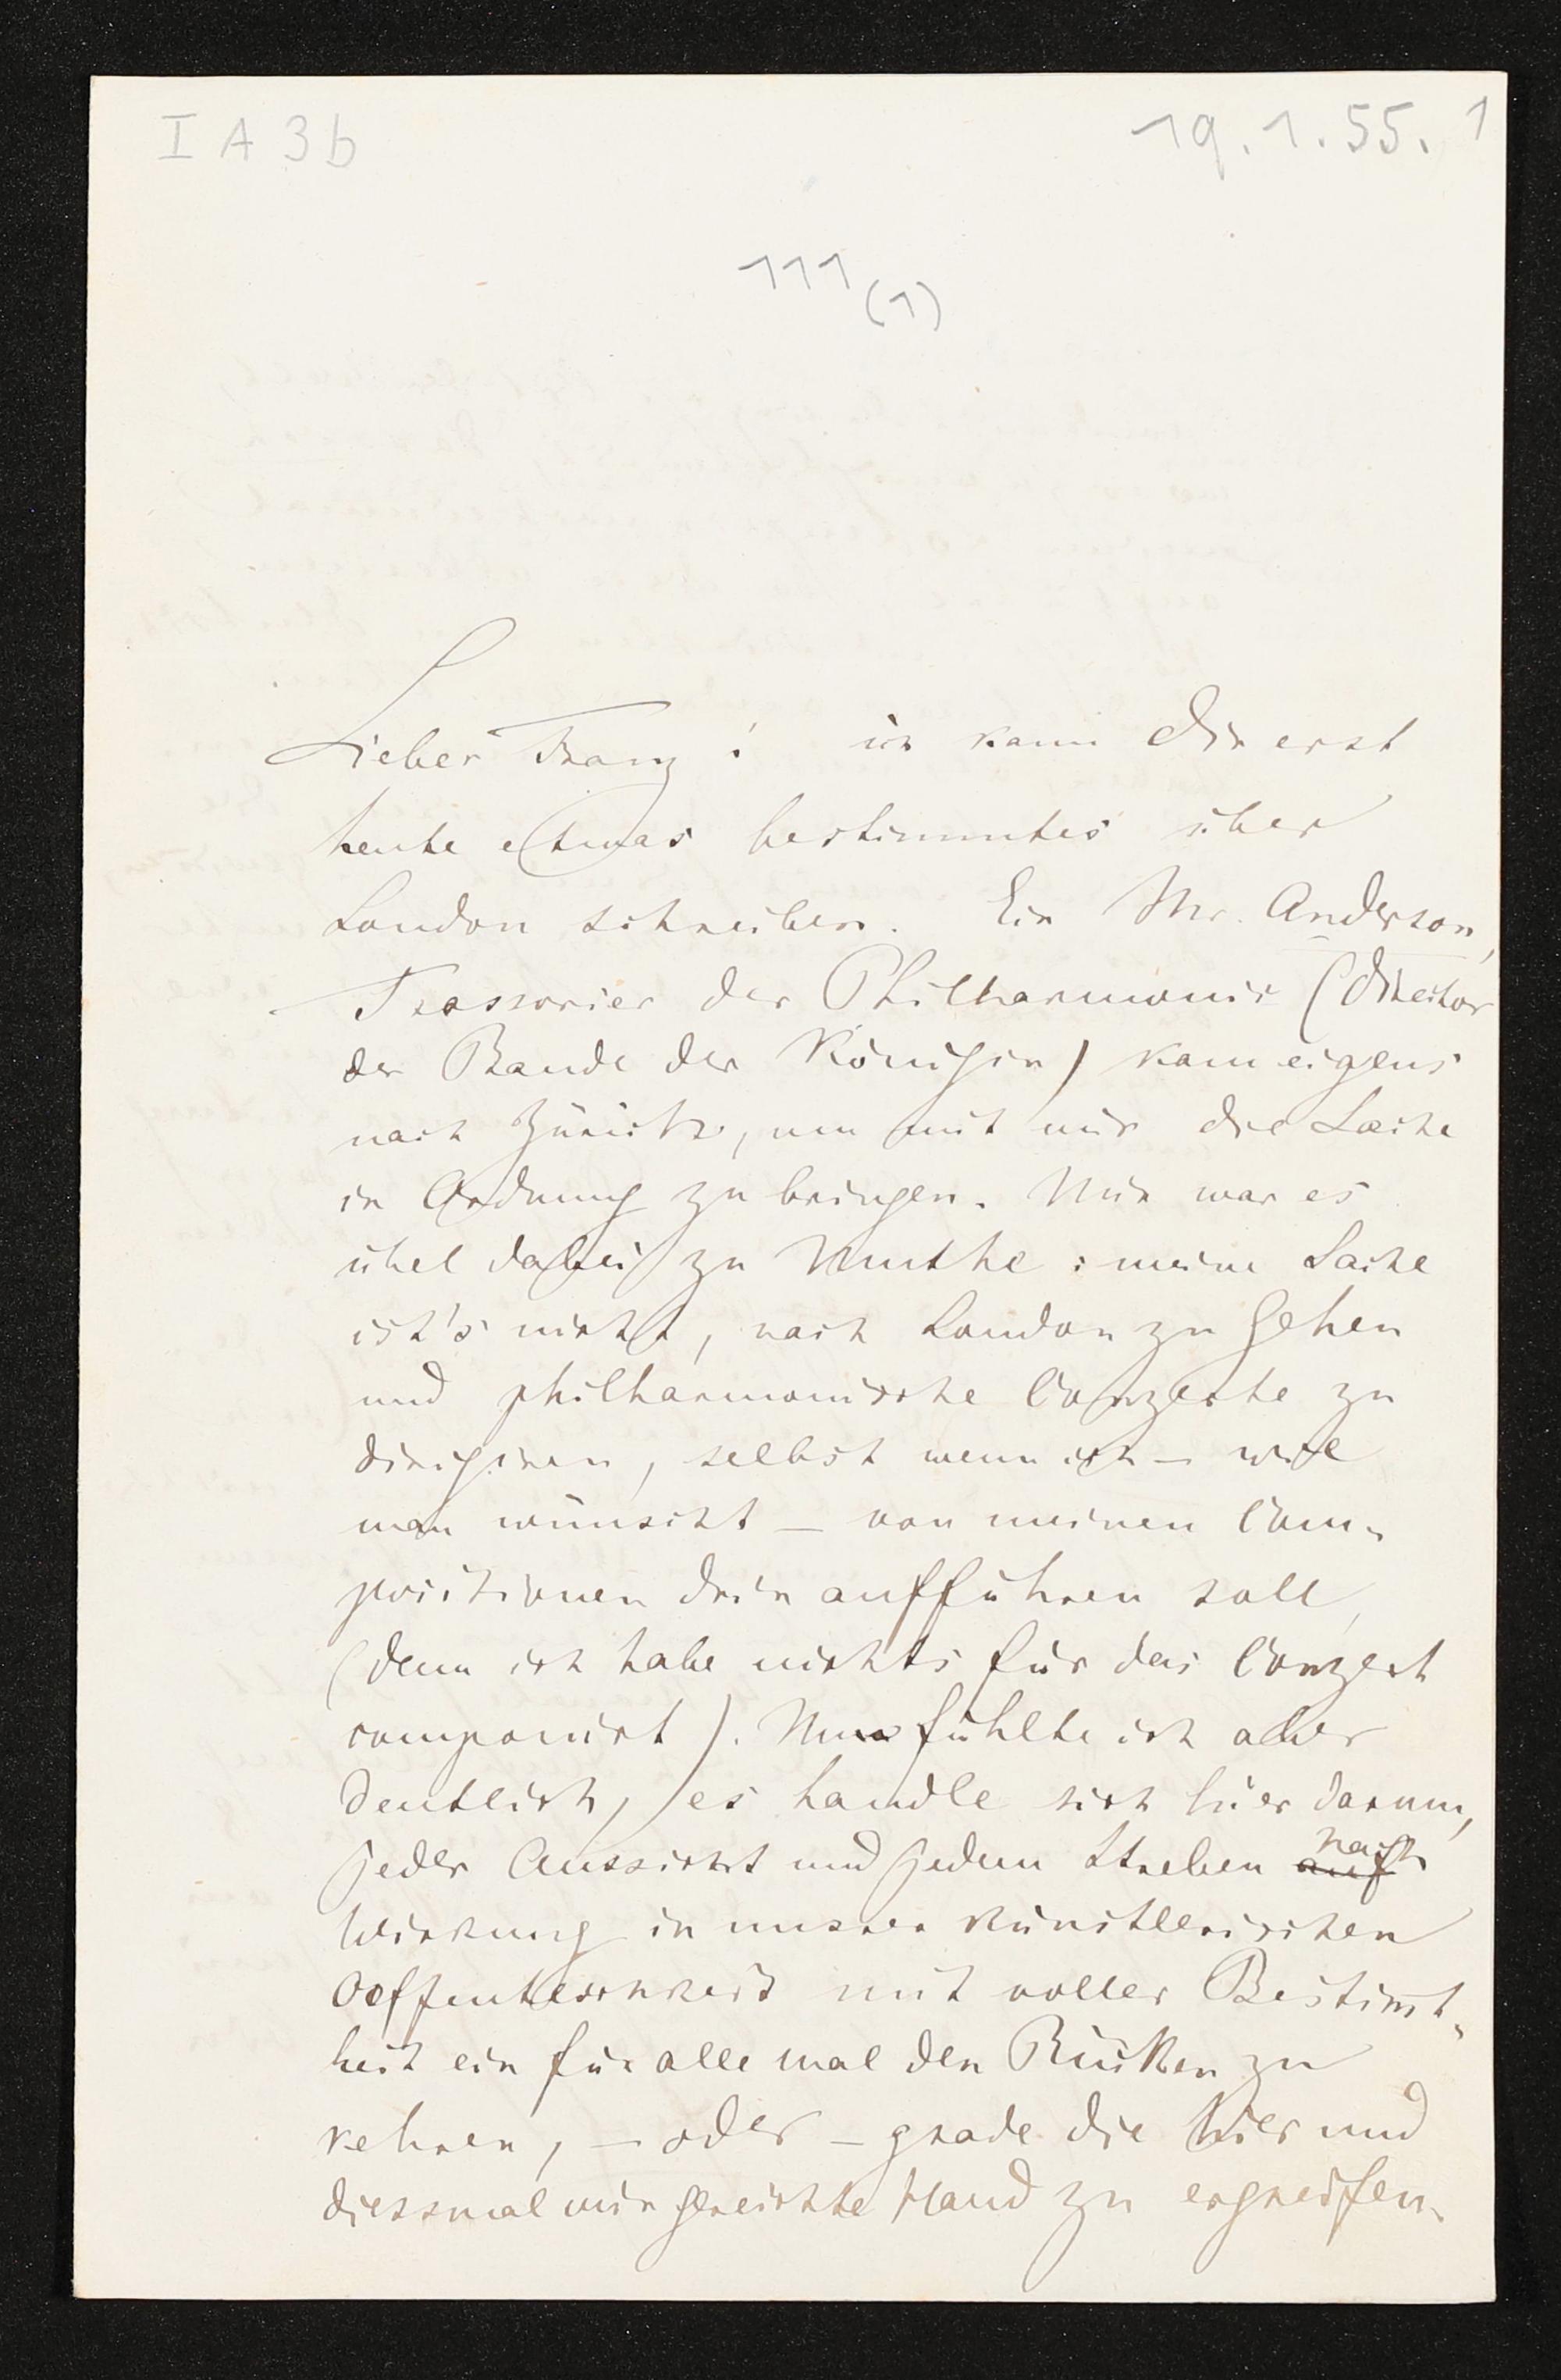 I A 3 b
19. 1. 55. 1
111 (1)
Lieber Franz! ich kann Dir erst
heute etwas bestimmtes über
London schreiben. Ein Mr. Anderson,
Tressorier der Philharmonic (Director
der Bande der Königin) kam eigens
nach Zürich, um mit mir die Sache
in Ordnung zu bringen. Mir war es
übel dabei zu Muthe: meine Sache
ist's nicht, nach London zu gehen
und philharmonische Conzerte zu
dirigiren, selbst wenn ich – wie
man wünscht – von meinen Com-
positionen drin aufführen soll,
(denn ich habe nichts für das Conzert
componirt). Nun fühlte ich aber
deutlich, es handle sich hier darum,
jeder Aussicht und jedem Streben auf nach
Wirkung in unsrer künstlerischen
Oeffentlichkeit mit voller Bestimt-
heit ein für alle mal den Rücken zu
kehren, – oder – grade die hier und
diessmal mir gereichte Hand zu ergreifen.